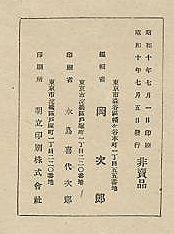 昭和十年七月一日印刷
昭和十年七月五日發行
非賣品
東京市澁谷區幡ケ谷本町一丁目五五番地
編輯者 岡次郎
東京市淀橋區戸塚町一丁目二二〇番地
印刷者 水島喜代次郎
東京市淀橋區戸塚町一丁目二二〇番地
印刷所 明立印刷株式會社